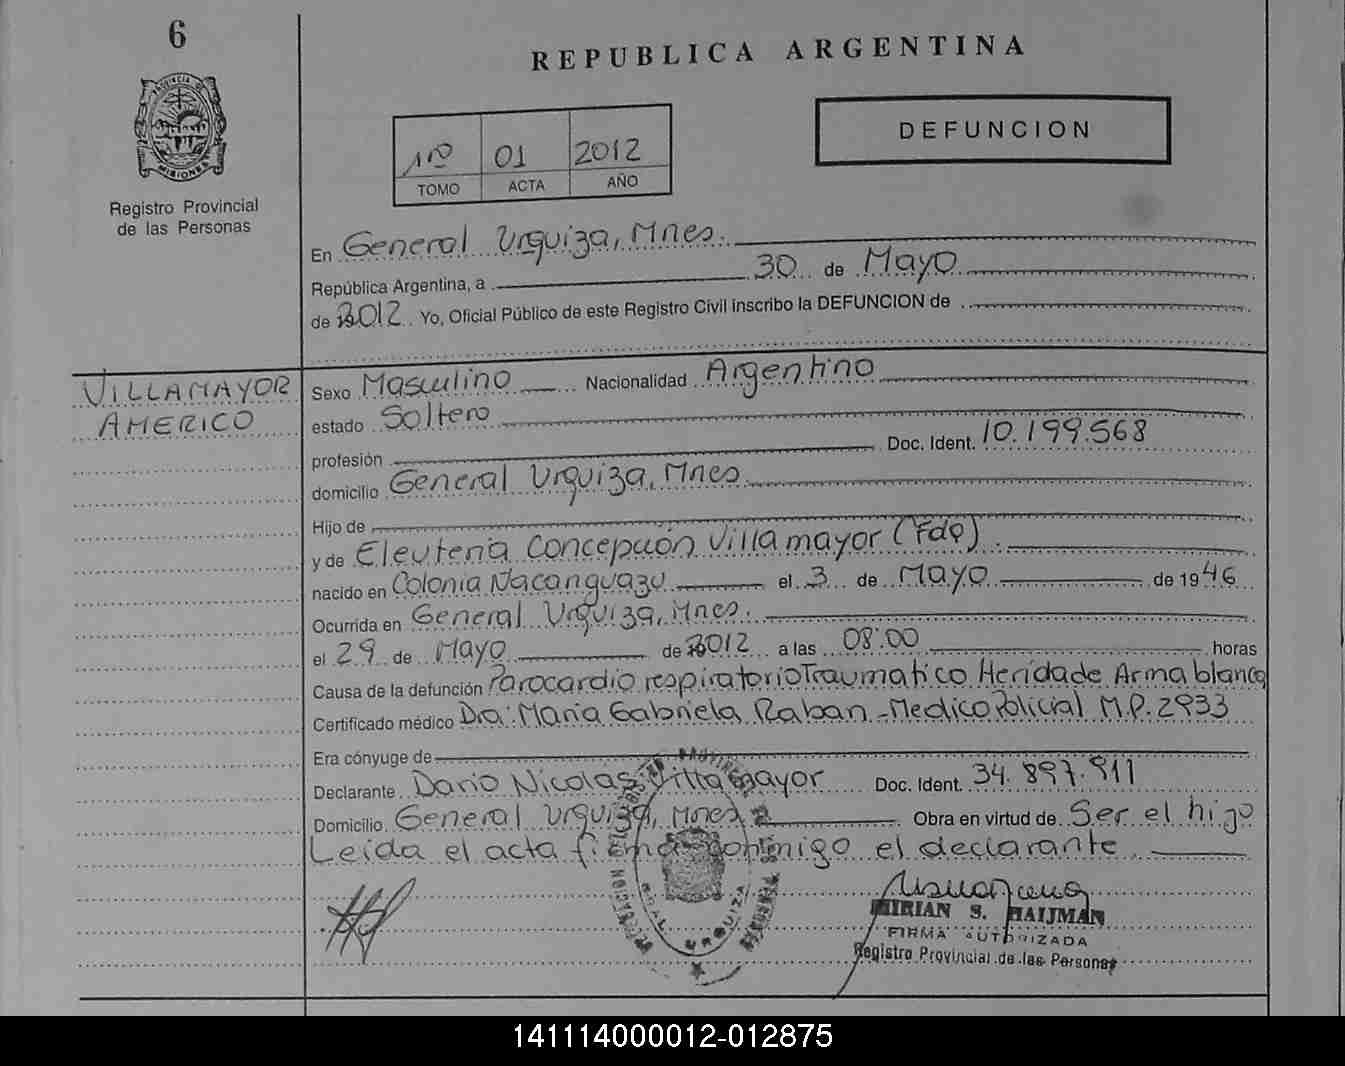 6
REPUBLICA ARGENTINA
PROVINCIA DE
MISIONES
DEFUNCION
1º 01 2012
TOMO ACTA AÑO
Registro Provincial
de las Personas
En General Urquiza, Mnes.
República Argentina, a 30 de Mayo
de 2012 Yo, Oficial Público de este Registro Civil inscribo la DEFUNCION de
VILLAMAYOR
AMERICO
Sexo Masculino Nacionalidad Argentino
estado Soltero
profesión Doc. Ident. 10.199.568
domicilio General Urquiza, Mnes
Hijo de
y de Eleuteria Concepción Villamayor (Fdo)
nacido en Colonia Ñacanguazu el 3 de Mayo de 1946
Ocurrida en General Urquiza, Mnes.
el 29 de Mayo de 2012 a las 08:00 horas
Causa de la defunción Parocardio respiratorio Traumatico Herida de Arma blanca
Certificado médico Dra: Maria Gabriela Raban - Medico Policial M.P. 2933
Era cónyuge de
Declarante Dario Nicolas Villamayor Doc. Ident. 34.897.911
Domicilio General Urquiza, Mnes Obra en virtud de Ser el hijo
Leida el acta firma conmigo el declarante
GRAL URQUIZA
MIRIAN S. HAIJMAN
FIRMA AUTORIZADA
Registro Provincial de las Personas
141114000012-012875